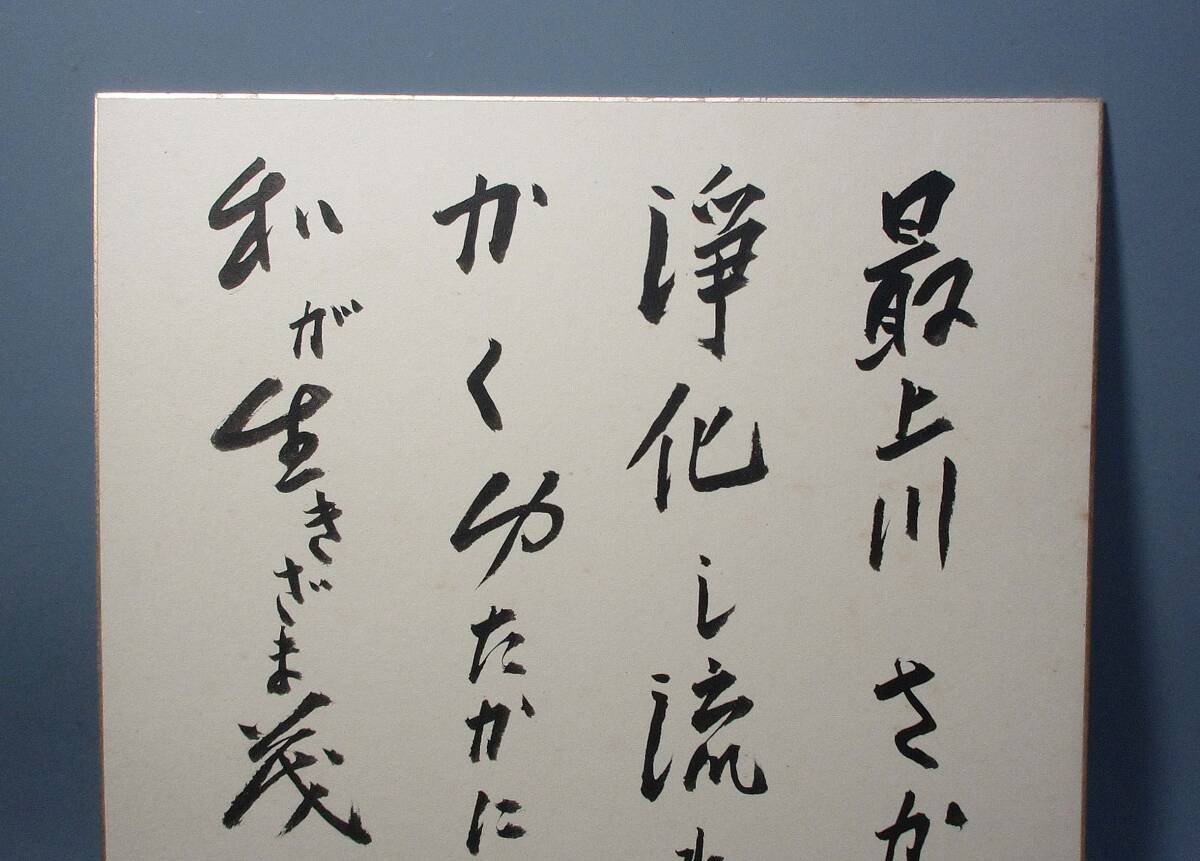 最上川 さか
淨化し流
かくゆたかに
私が生きざま茂